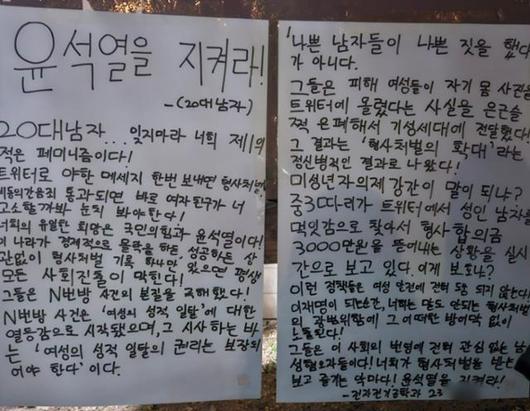 윤석열을 지켜라!
-(20대남자)
20대남자... 잊지마라 너희 제1의
적은 페미니즘이다!
트위터로 야한 메세지 한번 보내면 형사처벌
비동의간음죄 통과되면 바로 여자친구가 너
고소할까봐 눈치 봐야한다!
너희의 유일한 희망은 국민의힘과 윤석열이다!
이 나라가 경제적으로 몰락을 하든 성공하든 상
관없이 형사처벌 기록 하나만 있으면 평생
모든 사회진출이 막힌다!
그들은 N번방 사건의 본질을 곡해했다!
N번방 사건은 '여성의 성적 일탈'에 대한
열등감으로 시작됐으며, 그 시사하는 바
는 '여성의 성적 일탈의 권리는 보장되
어야 한다'이다.
'나쁜 남자들이 나쁜 짓을 했다'
가 아니다.
그들은 피해 여성들이 자기 몸 사진을
트위터에 올렸다는 사실을 은근슬
쩍 은폐해서 기성세대에 전달했다!
그 결과는 '형사처벌의 확대'라는
정신병적인 결과로 나왔다!
미성년자의제 강간이 말이 되나?
중3따리가 트위터에서 성인 남자를
먹잇감으로 찾아서 형사 합의금
3000만원을 뜯어내는 상황을 실시
간으로 보고 있다. 이게 보호냐?
이런 정책들은 여성 안전에 전혀 도움 되지 않는다!
이재명이 되는순간, 너희는 말도 안되는 형사처벌
의 광범위함에 그 어떠한 방어막 없이
노출된다!
그들은 이 사회의 번영에 전혀 관심없는 남
성혐오자들이다! 너희가 형사처벌을 받는
보고 즐기는 악마다! 윤석열을 지켜라!
- 전자전기공학과 23